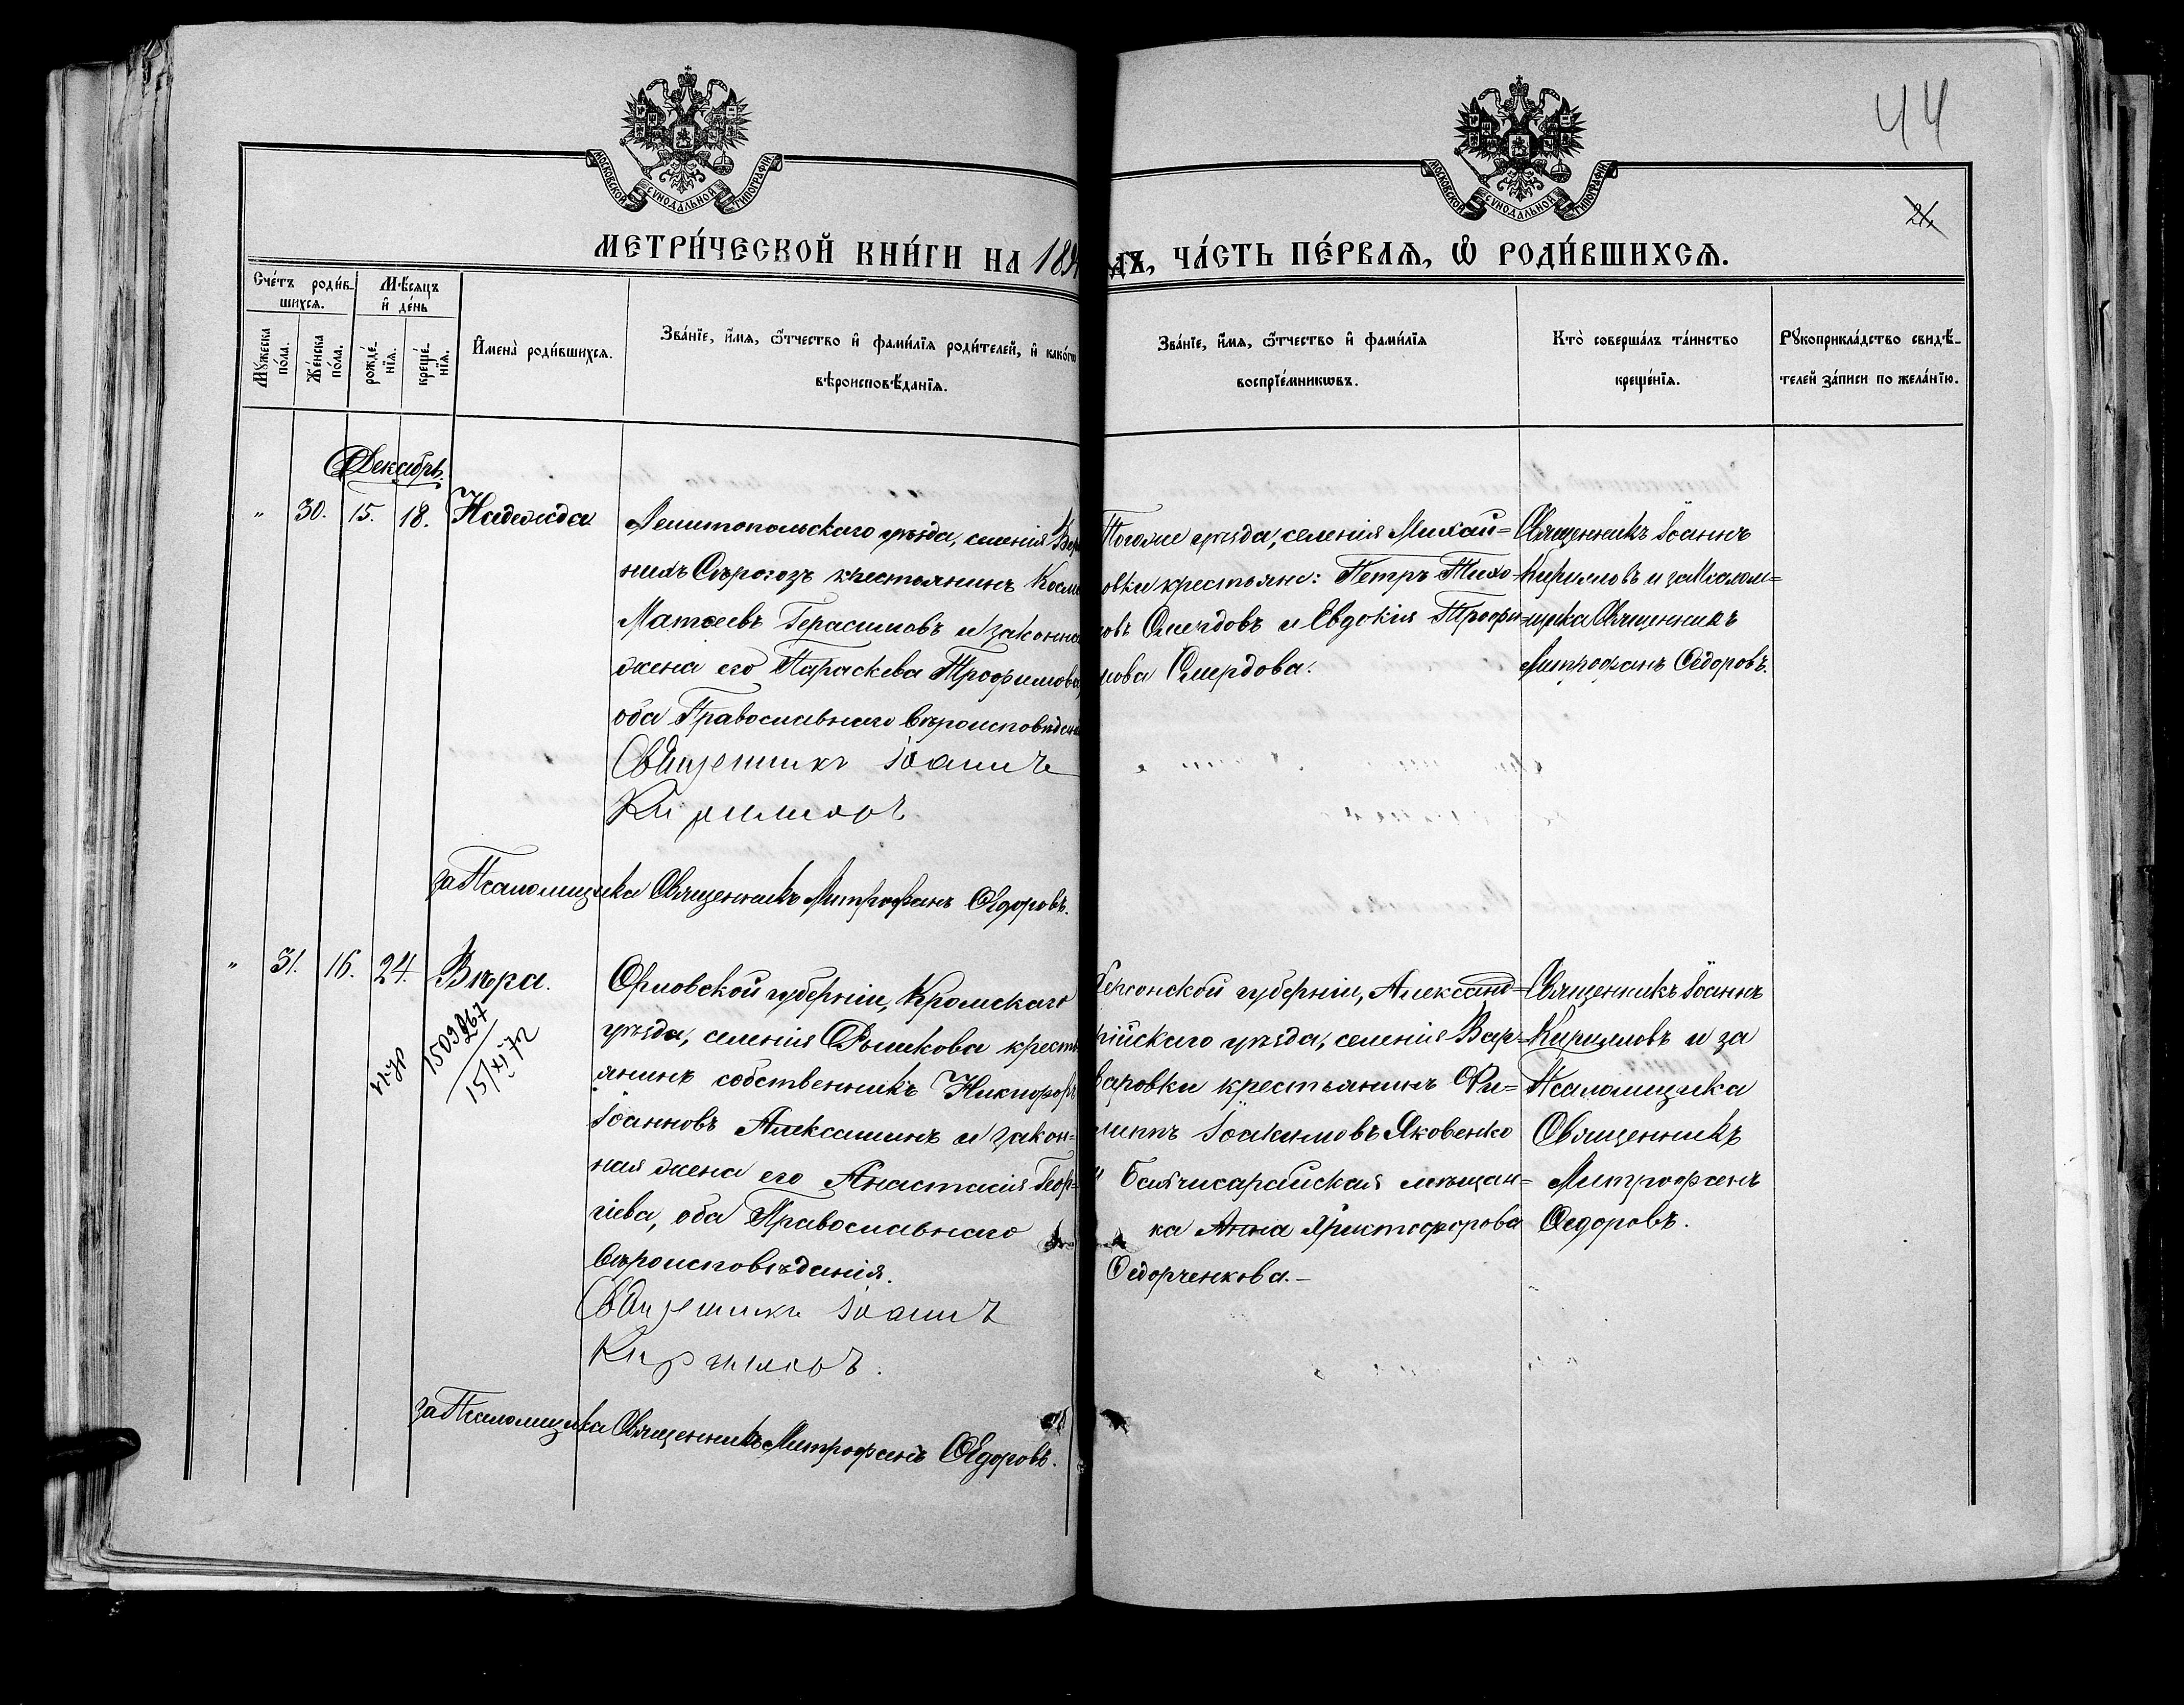 44
24
МОСКОВСКОЙ СѴНОДАЛЬНОЙ ТИПОГРАФІИ
МОСКОВСКОЙ СѴНОДАЛЬНОЙ ТИПОГРАФІИ
МЕТРИ́ЧЕСКОЙ КНИ́ГИ НА 189
ДЪ, ЧА́СТЬ ПЕ́РВАЯ, Ѡ РОДИ́ВШИХСЯ.
Сче́тъ роди́в-
шихся.
Мѣ́сяцъ
и҆ де́нь
Мꙋ́жеска
по́ла.
Же́нска
по́ла.
рожде́-
нїя.
креще́-
нїя.
И҆мена̀ роди́вшихся.
Зва́нїе, и҆́мя, ѻ҆́тчество и҆ фами́лїя роди́телей, и҆ како́гѡ
вѣроисповѣ́данїя.
Зва́нїе, и҆́мя, ѻ҆́тчество и҆ фами́лїя
воспрїе́мникѡвъ.
Кто̀ соверша́лъ та́инство
креще́нїя.
Рꙋкоприкла́дство свидѣ́-
телей за́писи по жела́нїю.
Декабрь.
" 30. 15. 18. Надежда
Мелитопольскаго уѣзда, селенія Вер
нихъ Сѣрогозъ крестьянинъ Косма
Матѳеевъ Герасимовъ и законна
жена его Параскева Трофимова,
оба Православнаго вѣроисповѣдані
Священникъ Іоаннъ
Кирилловъ
за Псаломщика Священникъ Митрофанъ Ѳедоровъ.
Тогоже уѣзда, селенія Михай=
овки крестьяне: Петръ Тихо-
овъ Смердовъ и Евдокія Трофи=
мова Смердова.
Священникъ Іоаннъ
Кирилловъ и за Псалом=
щика Священникъ
Митрофанъ Ѳедоровъ.
" 31. 16. 24. Вѣра.
1509267
15/XI 72
Орловской губерніи, Кромскаго
уѣзда, селенія Рышкова кресть
янинъ собственникъ Никифоръ
Іоанновъ Алексашинъ и закон=
ная жена его Анастасія Геор=
гіева, оба Православнаго
вѣроисповѣданія.
Священникъ Іоаннъ
Кирилловъ.
за Псаломщика Священникъ Митрофанъ Ѳедоровъ.
Херсонской губерніи, Александ=
рійскаго уѣзда, селенія Вар=
варовки крестьянинъ Фи=
липпъ Іоакимовъ Яковенко
и Бахчисарайская мѣщан=
ка Анна Христофорова
Ѳедорченкова.-
Священникъ Іоаннъ
Кирилловъ и за
Псаломщика
Священникъ
Митрофанъ
Ѳедоровъ.